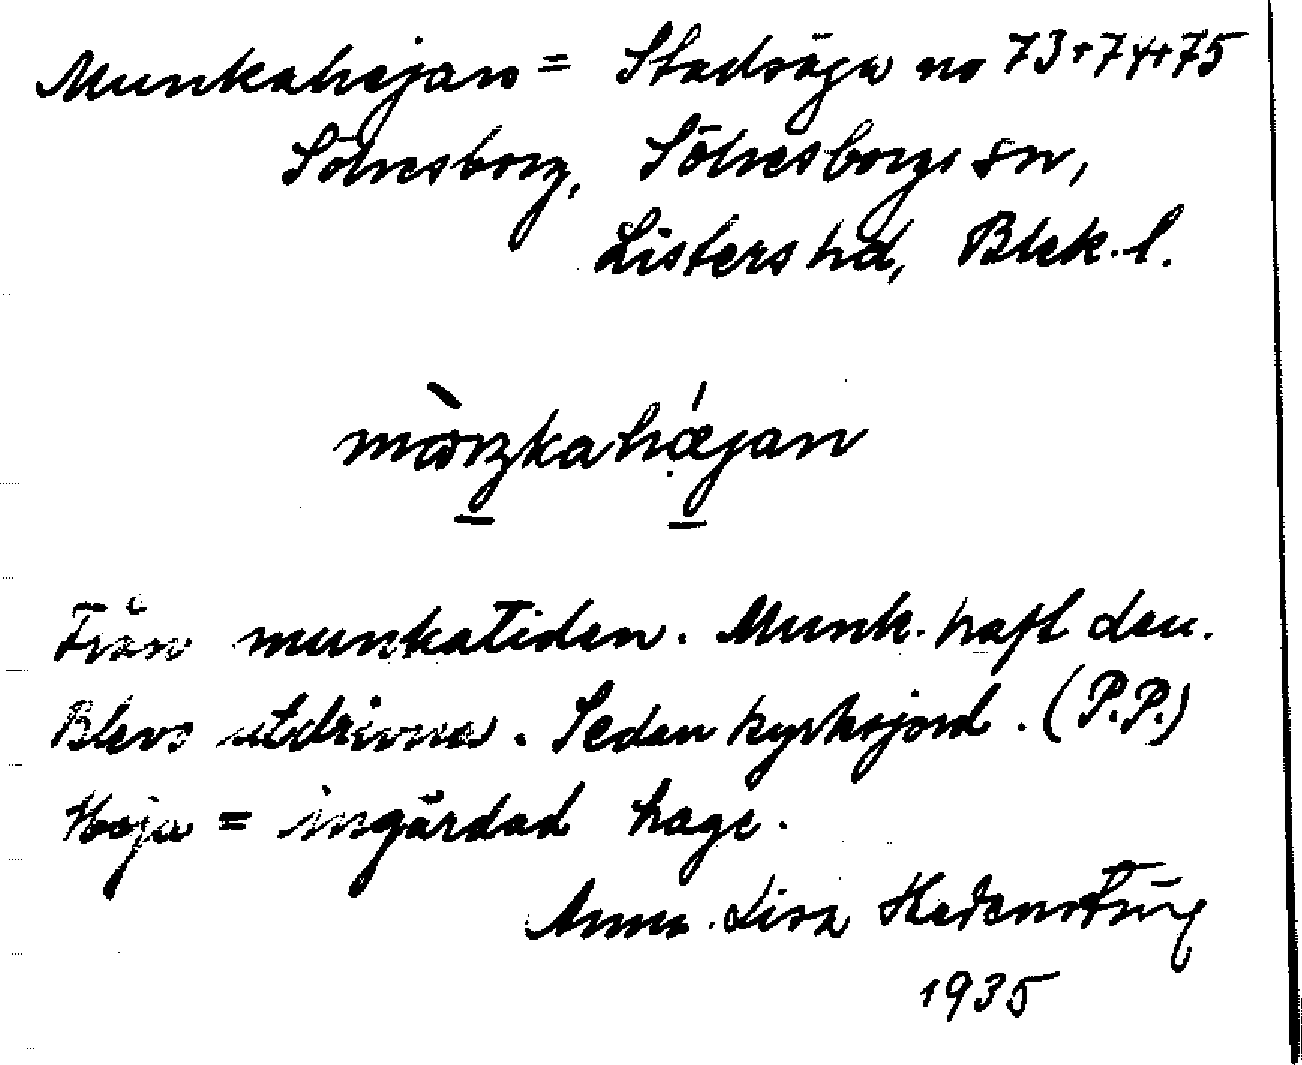 Munkahejan = Stadsäga no 73+74+75
Sölvesborg, Sölvesborgs sn,
Listers hd, Blek. l.
Från munkatiden. Munk. haft den.
Blevo utdrivna. Sedan kyrkojord. (P.P.)
Heja = ingärdad hage.
Anna-Lisa
1935